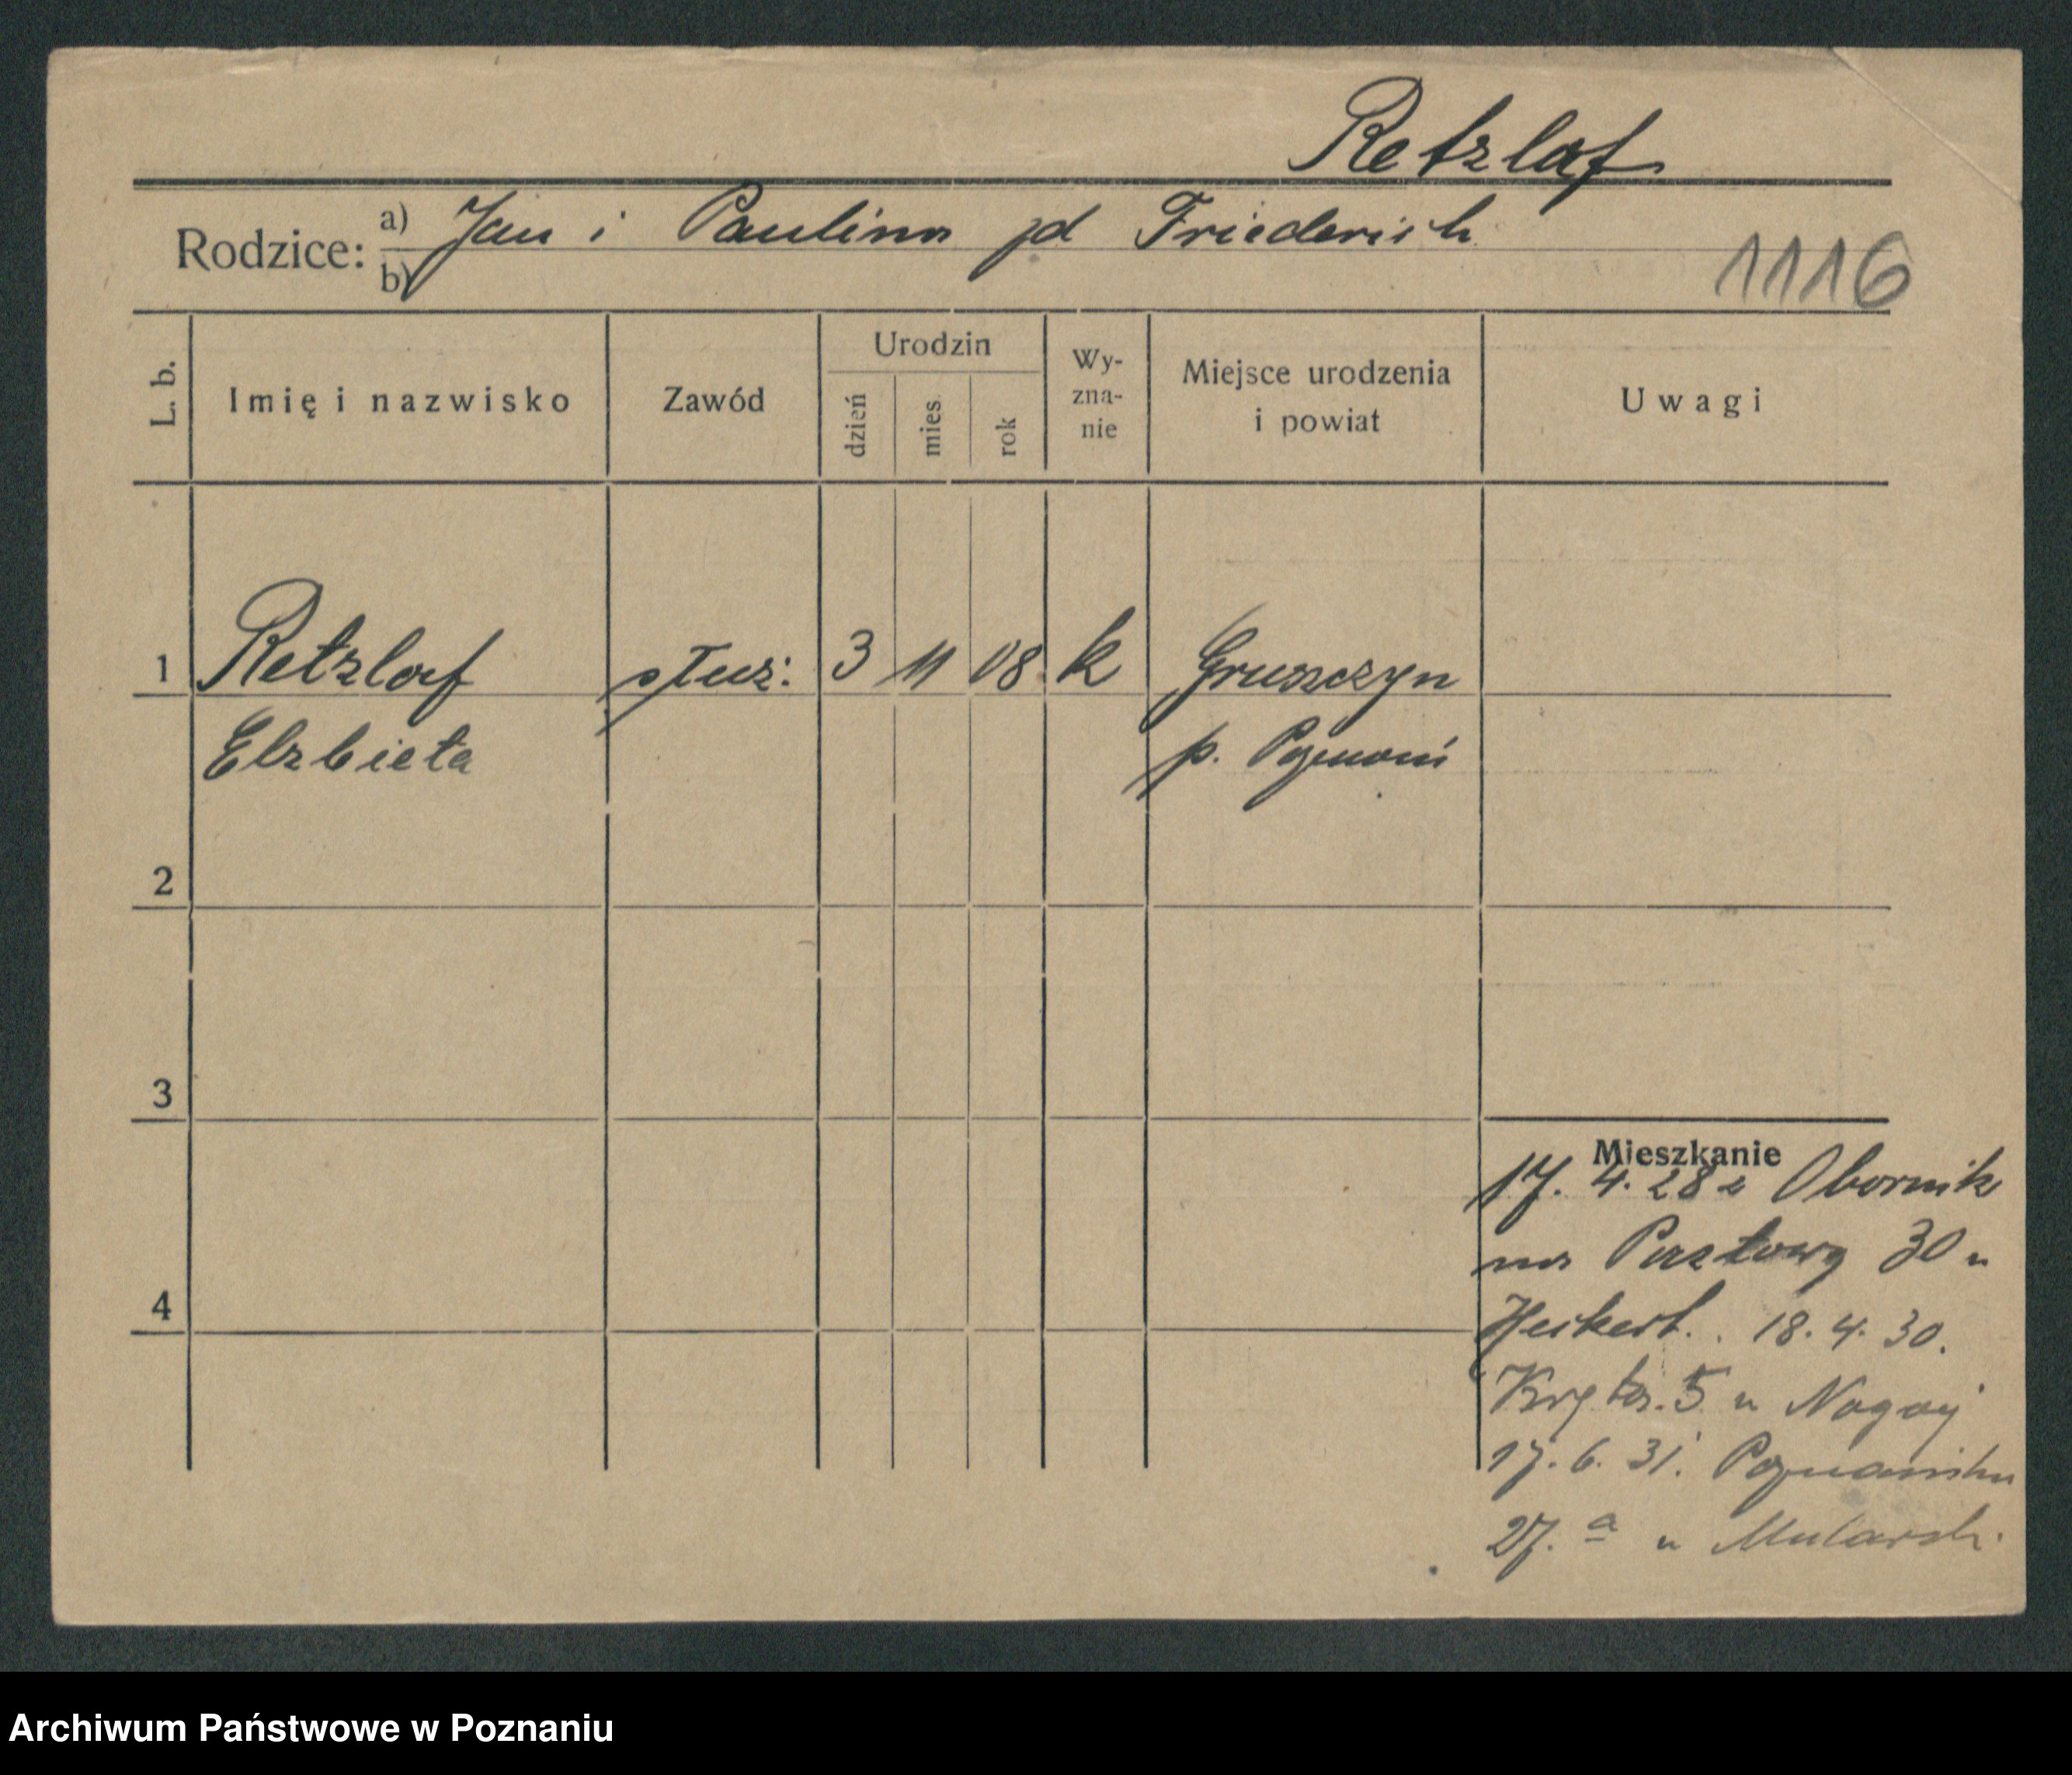 Retzlaf
Rodzice: a) Jan i Paulina zd Friederich
b)
1116
L. b.
Imię i nazwisko
Zawód
Urodzin
dzień
mies.
rok
Wy-
zna-
nie
Miejsce urodzenia
i powiat
Uwagi
1 Retzlaf służ: 3 11 08. k Gruszczyn
Elzbieta p. Poznań
2
3
4
Mieszkanie
17. 4. 28 z Obornik
na Pocztową 30 u
Heikert. 18. 4. 30.
5 u Nogaj
17. 6. 31.
27. a u Mularsk.
Archiwum Państwowe w Poznaniu